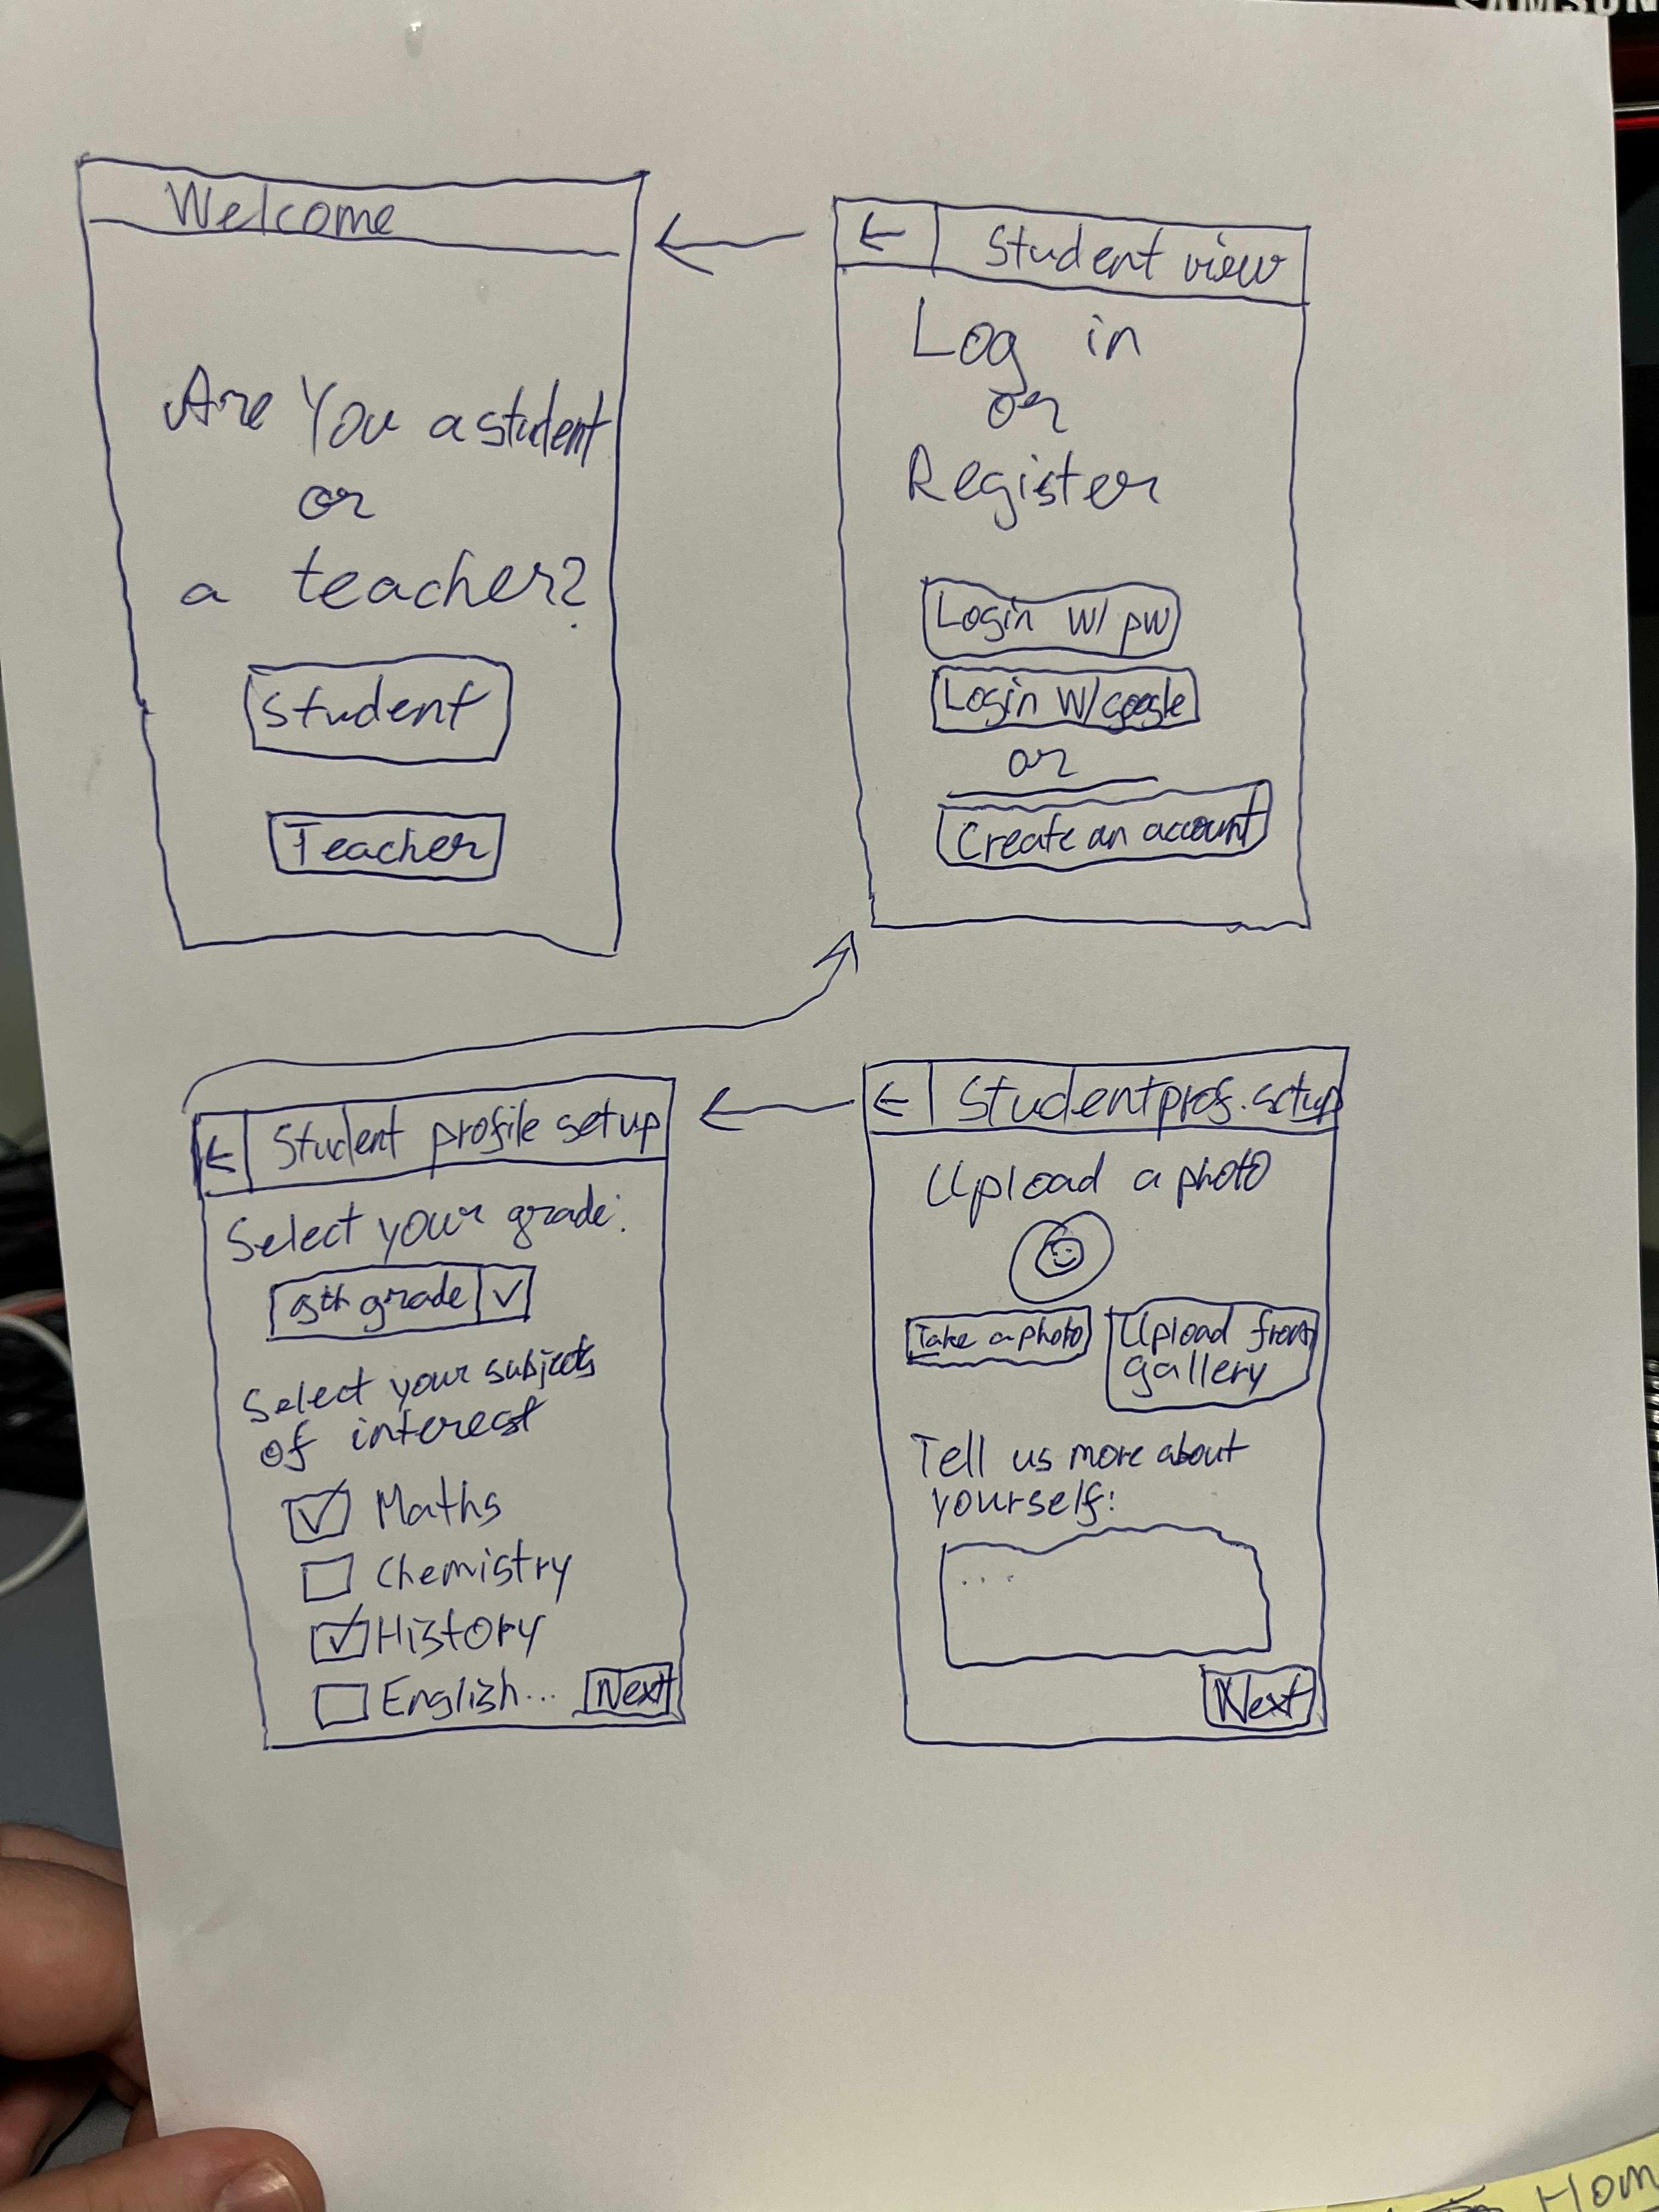 SAMSUN
Welcome
Are You a student
or
a teacher?
Student
Teacher
←
Student view
Log in
or
Register
Login w/ pw
Login w/google
or
Create an account
←
Student profile setup
Select your grade:
grade
Select your subjects
of interest
Maths
Chemistry
History
English...
Next
←
Student prof. setup
Upload a photo
Take a photo
Upload from
gallery
Tell us more about
yourself:
...
Next
Hom